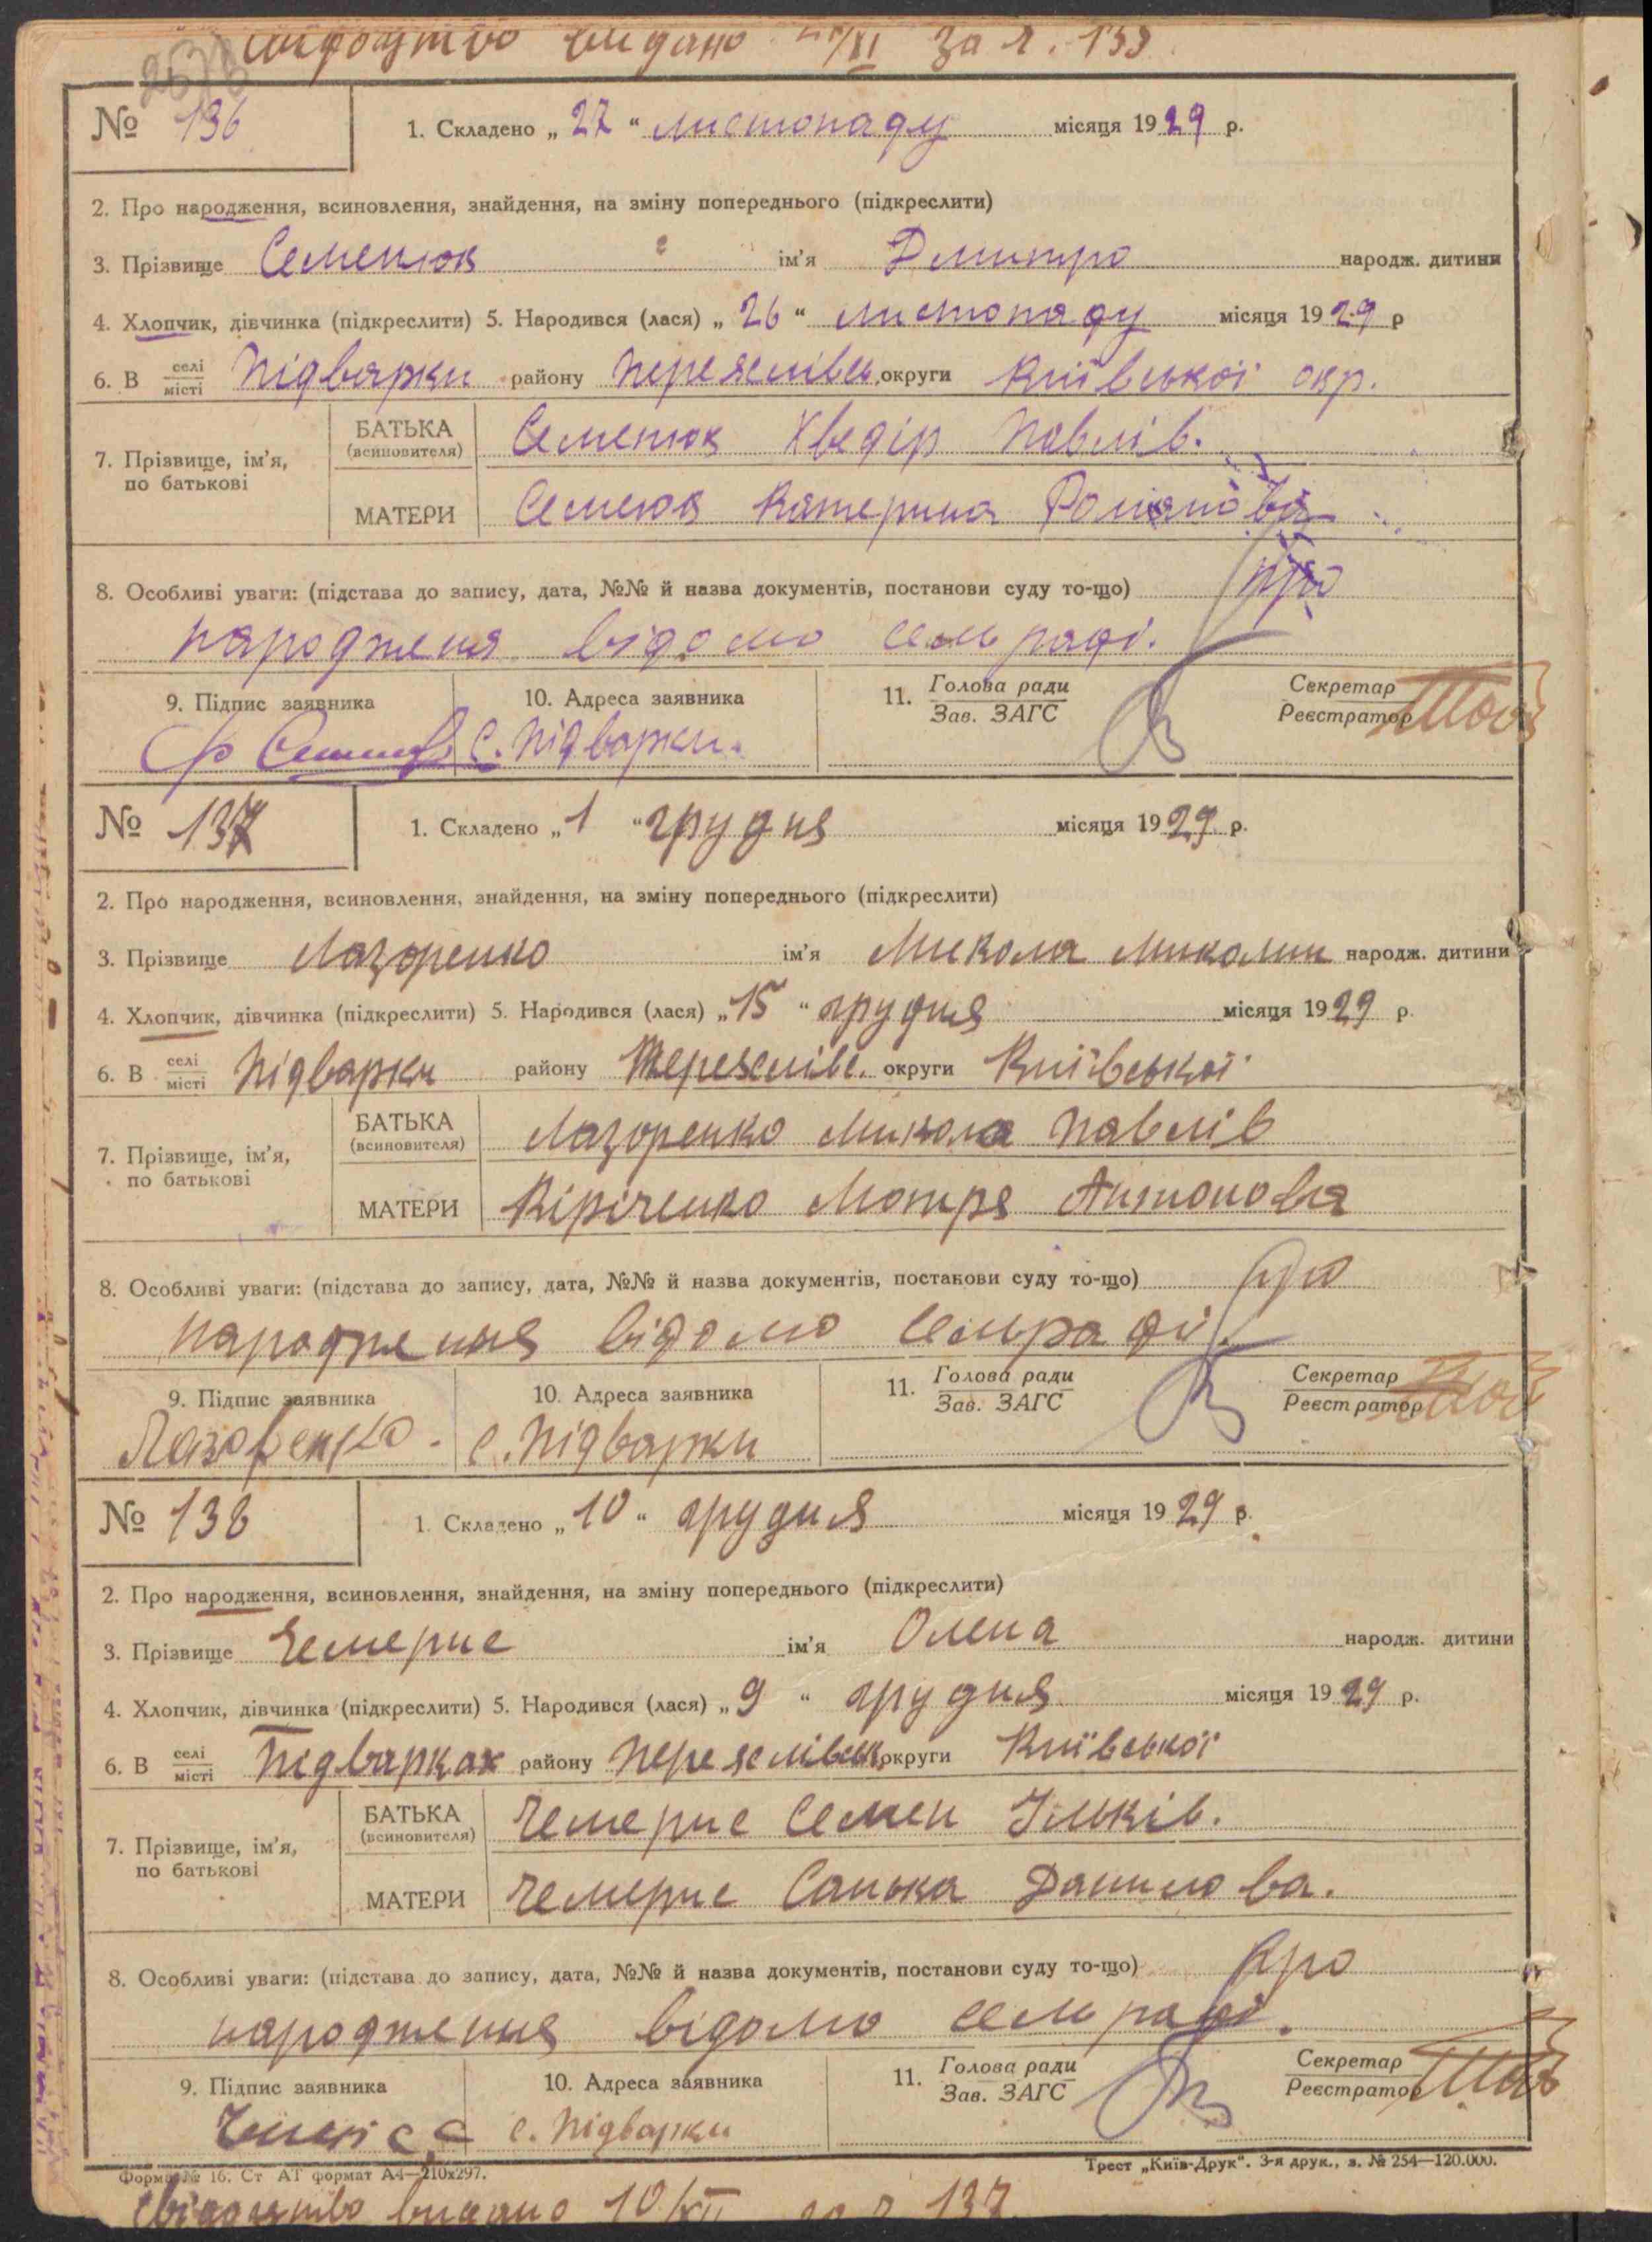 видано /XI За №. 135
2676
№ 136
1. Складено „ 27 “ листопаду місяця 1929 р.
2. Про народження, всиновлення, знайдення, на зміну попереднього (підкреслити)
3. Прізвище Семенюк ім’я Дмитро народж. дитини
4. Хлопчик, дівчинка (підкреслити) 5. Народився (лася) „ 26 “ листопаду місяця 1929 р
6. В селі/місті Підварки району Переяслівськ. округи Київської окр.
7. Прізвище, ім’я, по батькові
БАТЬКА (всиновителя) Семенюк Хведір Павлів.
МАТЕРИ Семеюк Катерина Романова
8. Особливі уваги: (підстава до запису, дата, №№ й назва документів, постанови суду то-що) про
народженя відомо сельраді.
9. Підпис заявника 10. Адреса заявника 11. Голова ради/Зав. ЗАГС Секретар/Реєстратор
с. Підварки.
№ 137
1. Складено „ 1 “ грудня місяця 1929 р.
2. Про народження, всиновлення, знайдення, на зміну попереднього (підкреслити)
3. Прізвище Лазоренко ім’я Микола Миколин народж. дитини
4. Хлопчик, дівчинка (підкреслити) 5. Народився (лася) „ 15 “ грудня місяця 1929 р.
6. В селі/місті Підварки району Переяслівс. округи Київської
7. Прізвище, ім’я, по батькові
БАТЬКА (всиновителя) Лазоренко Микола Павлів
МАТЕРИ Кіріченко Мотря Антонова
8. Особливі уваги: (підстава до запису, дата, №№ й назва документів, постанови суду то-що) про
народження відомо сельраді.
9. Підпис заявника 10. Адреса заявника 11. Голова ради/Зав. ЗАГС Секретар/Реєстратор
Лазоренко. с. Підварки
№ 138
1. Складено „ 10 “ грудня місяця 1929 р.
2. Про народження, всиновлення, знайдення, на зміну попереднього (підкреслити)
3. Прізвище Чемерис ім’я Олена народж. дитини
4. Хлопчик, дівчинка (підкреслити) 5. Народився (лася) „ 9 “ грудня місяця 1929 р.
6. В селі/місті Підварках району Переяслівськ. округи Київської
7. Прізвище, ім’я, по батькові
БАТЬКА (всиновителя) Чемерис Семен Ільків.
МАТЕРИ Чемерис Санька Данилова.
8. Особливі уваги: (підстава до запису, дата, №№ й назва документів, постанови суду то-що) про
народження відомо сельраді.
9. Підпис заявника 10. Адреса заявника 11. Голова ради/Зав. ЗАГС Секретар/Реєстратор
с. Підварки
Форма № 16. Ст АТ формат А4—210х297. Трест „Київ-Друк“. 3-я друк., з. № 254—120.000.
Свідоцтво видано 10/XII за № 137